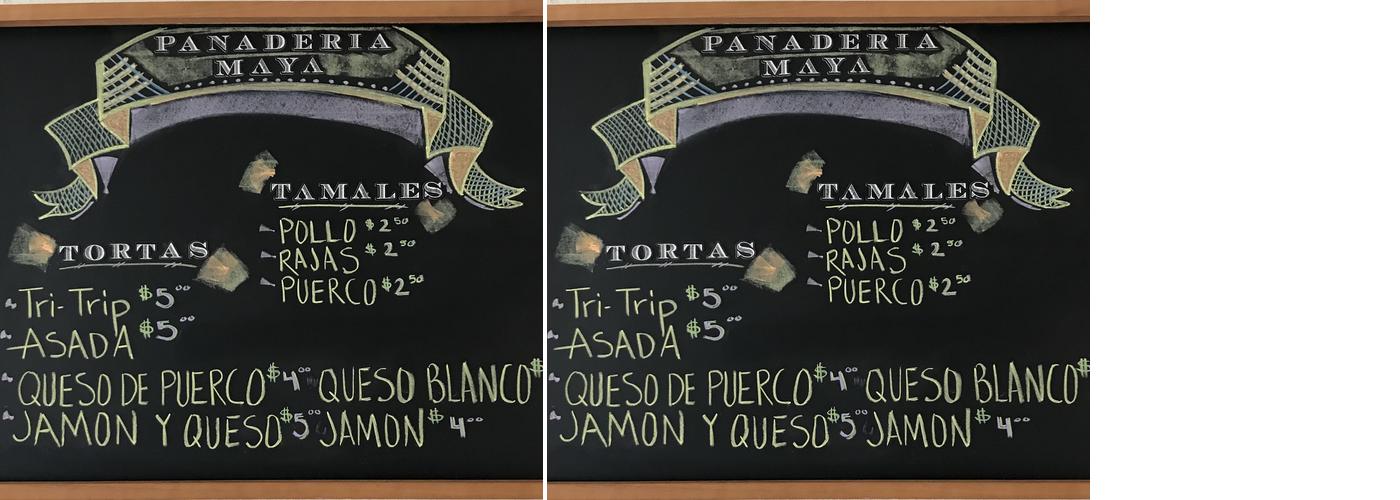 PANADERIA
MAYA
TAMALES
POLLO $2.50
RAJAS $2.50
PUERCO $2.50
TORTAS
Tri-Trip $5.00
ASADA $5.00
QUESO DE PUERCO $4.00 QUESO BLANCO $
JAMON Y QUESO $5.00 JAMON $4.00
PANADERIA
MAYA
TAMALES
POLLO $2.50
RAJAS $2.50
PUERCO $2.50
TORTAS
Tri-Trip $5.00
ASADA $5.00
QUESO DE PUERCO $4.00 QUESO BLANCO $
JAMON Y QUESO $5.00 JAMON $4.00